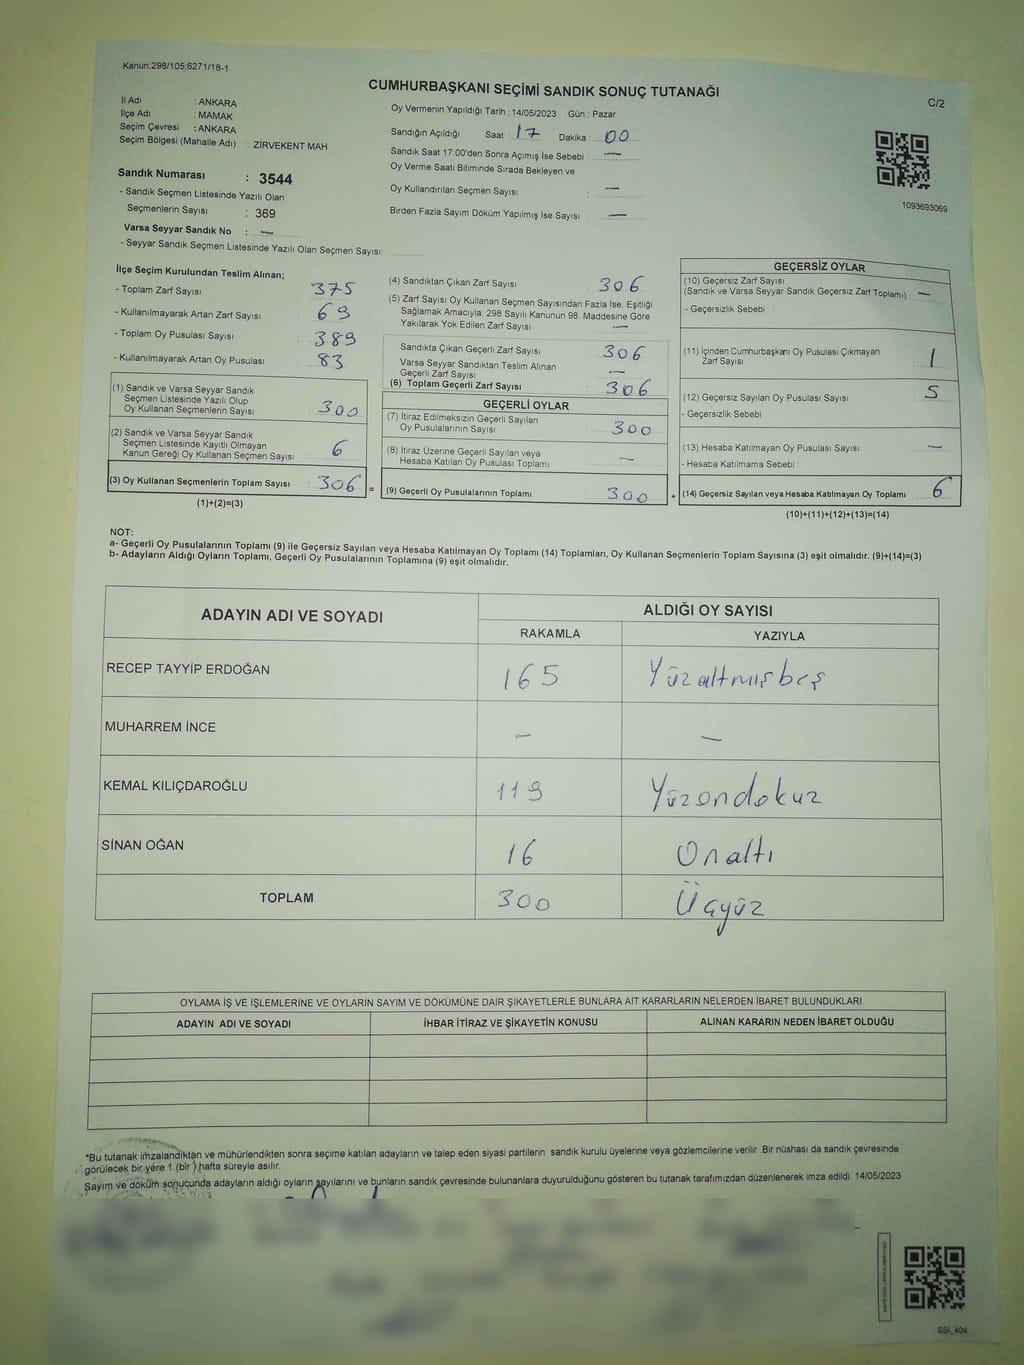 Kanun:298/105;6271/18-1
CUMHURBAŞKANI SEÇİMİ SANDIK SONUÇ TUTANAĞI
C/2
İl Adı : ANKARA
İlçe Adı : MAMAK
Seçim Çevresi : ANKARA
Seçim Bölgesi (Mahalle Adı) : ZİRVEKENT MAH
Sandık Numarası : 3544
- Sandık Seçmen Listesinde Yazılı Olan
Seçmenlerin Sayısı : 369
Varsa Seyyar Sandık No : —
- Seyyar Sandık Seçmen Listesinde Yazılı Olan Seçmen Sayısı:
Oy Vermenin Yapıldığı Tarih : 14/05/2023 Gün : Pazar
Sandığın Açıldığı Saat : 17 Dakika : 00
Sandık Saat 17:00'den Sonra Açımış İse Sebebi : —
Oy Verme Saati Bitiminde Sırada Bekleyen ve
Oy Kullandırılan Seçmen Sayısı : —
Birden Fazla Sayım Döküm Yapılmış İse Sayısı : —
1093693069
İlçe Seçim Kurulundan Teslim Alınan;
- Toplam Zarf Sayısı : 375
- Kullanılmayarak Artan Zarf Sayısı : 69
- Toplam Oy Pusulası Sayısı : 389
- Kullanılmayarak Artan Oy Pusulası : 83
(1) Sandık ve Varsa Seyyar Sandık
Seçmen Listesinde Yazılı Olup
Oy Kullanan Seçmenlerin Sayısı : 300
(2) Sandık ve Varsa Seyyar Sandık
Seçmen Listesinde Kayıtlı Olmayan
Kanun Gereği Oy Kullanan Seçmen Sayısı : 6
(3) Oy Kullanan Seçmenlerin Toplam Sayısı : 306 =
(1)+(2)=(3)
(4) Sandıktan Çıkan Zarf Sayısı : 306
(5) Zarf Sayısı Oy Kullanan Seçmen Sayısından Fazla İse, Eşitliği
Sağlamak Amacıyla; 298 Sayılı Kanunun 98. Maddesine Göre
Yakılarak Yok Edilen Zarf Sayısı : —
Sandıkta Çıkan Geçerli Zarf Sayısı : 306
Varsa Seyyar Sandıktan Teslim Alınan
Geçerli Zarf Sayısı : —
(6) Toplam Geçerli Zarf Sayısı : 306
GEÇERLİ OYLAR
(7) İtiraz Edilmeksizin Geçerli Sayılan
Oy Pusulalarının Sayısı : 300
(8) İtiraz Üzerine Geçerli Sayılan veya
Hesaba Katılan Oy Pusulası Toplamı : —
(9) Geçerli Oy Pusulalarının Toplamı : 300 +
GEÇERSİZ OYLAR
(10) Geçersiz Zarf Sayısı
(Sandık ve Varsa Seyyar Sandık Geçersiz Zarf Toplamı) : —
- Geçersizlik Sebebi :
(11) İçinden Cumhurbaşkanı Oy Pusulası Çıkmayan
Zarf Sayısı : 1
(12) Geçersiz Sayılan Oy Pusulası Sayısı : 5
- Geçersizlik Sebebi :
(13) Hesaba Katılmayan Oy Pusulası Sayısı : —
- Hesaba Katılmama Sebebi :
(14) Geçersiz Sayılan veya Hesaba Katılmayan Oy Toplamı : 6
(10)+(11)+(12)+(13)=(14)
NOT:
a- Geçerli Oy Pusulalarının Toplamı (9) ile Geçersiz Sayılan veya Hesaba Katılmayan Oy Toplamı (14) Toplamları, Oy Kullanan Seçmenlerin Toplam Sayısına (3) eşit olmalıdır. (9)+(14)=(3)
b- Adayların Aldığı Oyların Toplamı, Geçerli Oy Pusulalarının Toplamına (9) eşit olmalıdır.
ADAYIN ADI VE SOYADI
ALDIĞI OY SAYISI
RAKAMLA YAZIYLA
RECEP TAYYİP ERDOĞAN 165 Yüzaltmışbeş
MUHARREM İNCE — —
KEMAL KILIÇDAROĞLU 119 Yüzondokuz
SİNAN OĞAN 16 Onaltı
TOPLAM 300 Üçyüz
OYLAMA İŞ VE İŞLEMLERİNE VE OYLARIN SAYIM VE DÖKÜMÜNE DAİR ŞİKAYETLERLE BUNLARA AİT KARARLARIN NELERDEN İBARET BULUNDUKLARI
ADAYIN ADI VE SOYADI İHBAR İTİRAZ VE ŞİKAYETİN KONUSU ALINAN KARARIN NEDEN İBARET OLDUĞU
*Bu tutanak imzalandıktan ve mühürlendikten sonra seçime katılan adayların ve talep eden siyasi partilerin sandık kurulu üyelerine veya gözlemcilerine verilir. Bir nüshası da sandık çevresinde
görülecek bir yere 1 (bir ) hafta süreyle asılır.
Sayım ve döküm sonucunda adayların aldığı oyların sayılarını ve bunların sandık çevresinde bulunanlara duyurulduğunu gösteren bu tutanak tarafımızdan düzenlenerek imza edildi. 14/05/2023
SSI_404